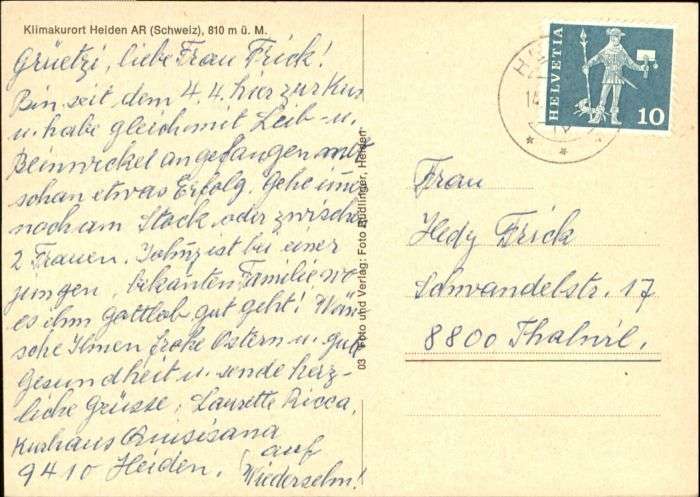 Klimakurort Heiden AR (Schweiz), 810 m ü. M.
Grüetzi, liebe Frau Frick!
Bin seit dem 4.4. hier zur Kur
u. habe gleich mit Leib- u.
Beinwickel angefangen mit
schon etwas Erfolg. Gehe imer
noch am Stock oder zwische
2 Frauen. ist bei einer
jungen, bekanten Familie wo
es ihm gottlob gut geht! Wün-
sche Ihnen frohe Ostern u. gute
Gesundheit u. sende herz-
liche Grüsse, Laurette Ricca,
Kurhaus Quisisana
9410 Heiden. auf
Wiedersehn!
03 Foto und Verlag: Foto Rüdlinger, Heiden
HELVETIA
10
Frau
Hedy Frick
Schwandelstr. 17
8800 Thalwil.